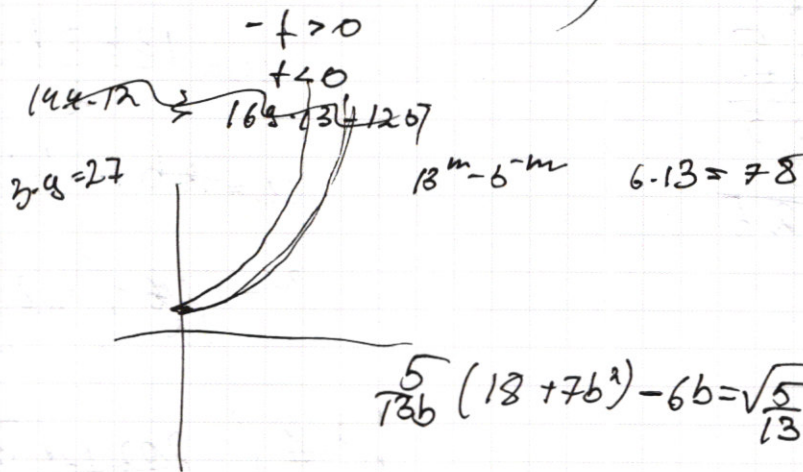 -t>0
t<0
144-12 > 169-13+120t
3·9=27
13^m-5^-m
6·13=78
5/13b (18+7b²)-6b=√5/13